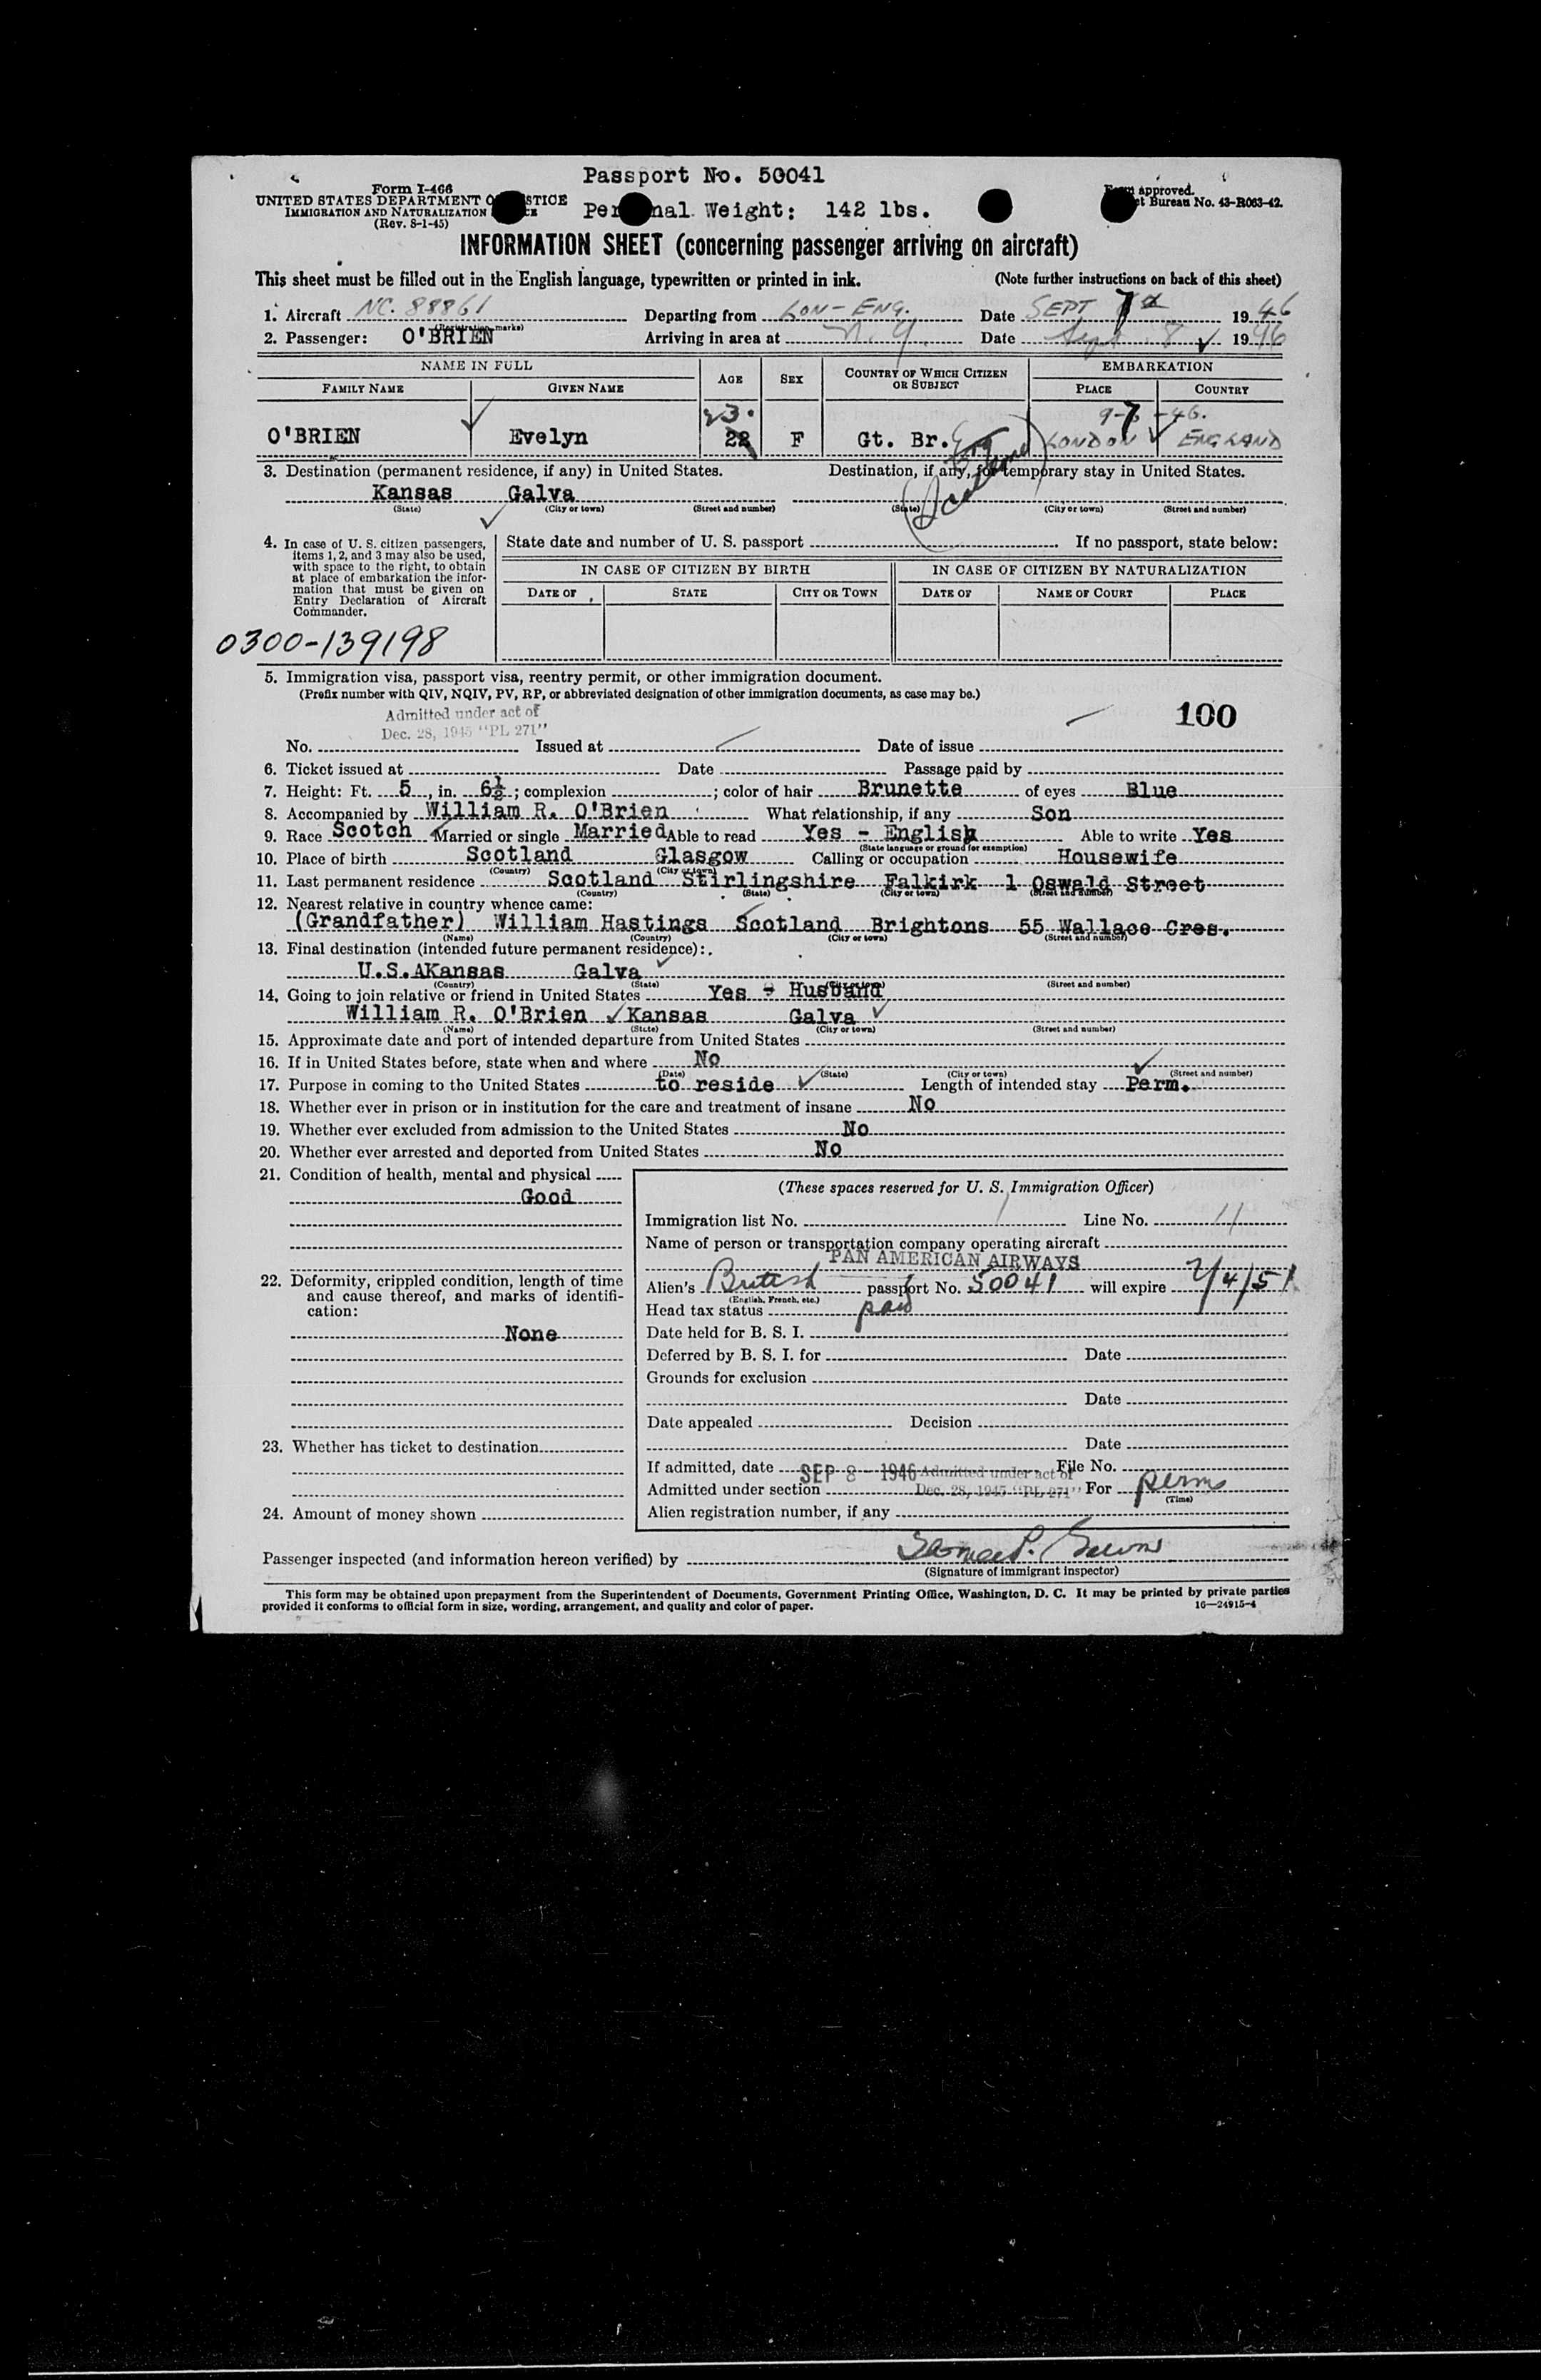 Passport No. 50041
Form I-466
UNITED STATES DEPARTMENT OF JUSTICE
IMMIGRATION AND NATURALIZATION
(Rev. 8-1-45)
Personal Weight: 142 lbs.
Form approved.
Budget Bureau No. 43-R063-42.
INFORMATION SHEET (concerning passenger arriving on aircraft)
This sheet must be filled out in the English language, typewritten or printed in ink. (Note further instructions on back of this sheet)
1. Aircraft NC. 88861 Departing from LON-ENG. Date SEPT 7 1946
(Registration marks)
2. Passenger: O'BRIEN Arriving in area at N.Y. Date Sept. 8 1946
NAME IN FULL AGE SEX COUNTRY OF WHICH CITIZEN OR SUBJECT EMBARKATION
FAMILY NAME GIVEN NAME PLACE COUNTRY
23. 9-7-46.
O'BRIEN Evelyn 22 F Gt. Br. LONDON ENGLAND
(Scotland)
3. Destination (permanent residence, if any) in United States. Destination, if any, for temporary stay in United States.
Kansas Galva
(State) (City or town) (Street and number) (State) (City or town) (Street and number)
4. In case of U. S. citizen passengers, items 1, 2, and 3 may also be used, with space to the right, to obtain at place of embarkation the information that must be given on Entry Declaration of Aircraft Commander.
State date and number of U. S. passport If no passport, state below:
IN CASE OF CITIZEN BY BIRTH IN CASE OF CITIZEN BY NATURALIZATION
DATE OF STATE CITY OR TOWN DATE OF NAME OF COURT PLACE
0300-139198
5. Immigration visa, passport visa, reentry permit, or other immigration document.
(Prefix number with QIV, NQIV, PV, RP, or abbreviated designation of other immigration documents, as case may be.)
Admitted under act of
Dec. 28, 1945 "PL 271"
100
No. Issued at Date of issue
6. Ticket issued at Date Passage paid by
7. Height: Ft. 5, in. 6½; complexion ; color of hair Brunette of eyes Blue
8. Accompanied by William R. O'Brien What relationship, if any Son
9. Race Scotch Married or single Married Able to read Yes - English Able to write Yes
(State language or ground for exemption)
10. Place of birth Scotland Glasgow Calling or occupation Housewife
(Country) (City or town)
11. Last permanent residence Scotland Stirlingshire Falkirk 1 Oswald Street
(Country) (State) (City or town) (Street and number)
12. Nearest relative in country whence came:
(Grandfather) William Hastings Scotland Brightons 55 Wallace Cres.
(Name) (Country) (City or town) (Street and number)
13. Final destination (intended future permanent residence):
U.S.A Kansas Galva
(Country) (State) (City or town) (Street and number)
14. Going to join relative or friend in United States Yes - Husband
William R. O'Brien Kansas Galva
(Name) (State) (City or town) (Street and number)
15. Approximate date and port of intended departure from United States
16. If in United States before, state when and where No
(Date) (State) (City or town) (Street and number)
17. Purpose in coming to the United States to reside Length of intended stay Perm.
18. Whether ever in prison or in institution for the care and treatment of insane No
19. Whether ever excluded from admission to the United States No
20. Whether ever arrested and deported from United States No
21. Condition of health, mental and physical
Good
22. Deformity, crippled condition, length of time and cause thereof, and marks of identification:
None
23. Whether has ticket to destination
24. Amount of money shown
(These spaces reserved for U. S. Immigration Officer)
Immigration list No. 1 Line No. 11
Name of person or transportation company operating aircraft
PAN AMERICAN AIRWAYS
Alien's British passport No. 50041 will expire 7/4/51
(English, French, etc.)
Head tax status paid
Date held for B. S. I.
Deferred by B. S. I. for Date
Grounds for exclusion
Date
Date appealed Decision
Date
If admitted, date SEP 8 - 1946 Admitted under act of File No.
Admitted under section Dec. 28, 1945 "PL 271" For perm
(Time)
Alien registration number, if any
Passenger inspected (and information hereon verified) by
(Signature of immigrant inspector)
This form may be obtained upon prepayment from the Superintendent of Documents, Government Printing Office, Washington, D. C. It may be printed by private parties
provided it conforms to official form in size, wording, arrangement, and quality and color of paper.
16—24915-4